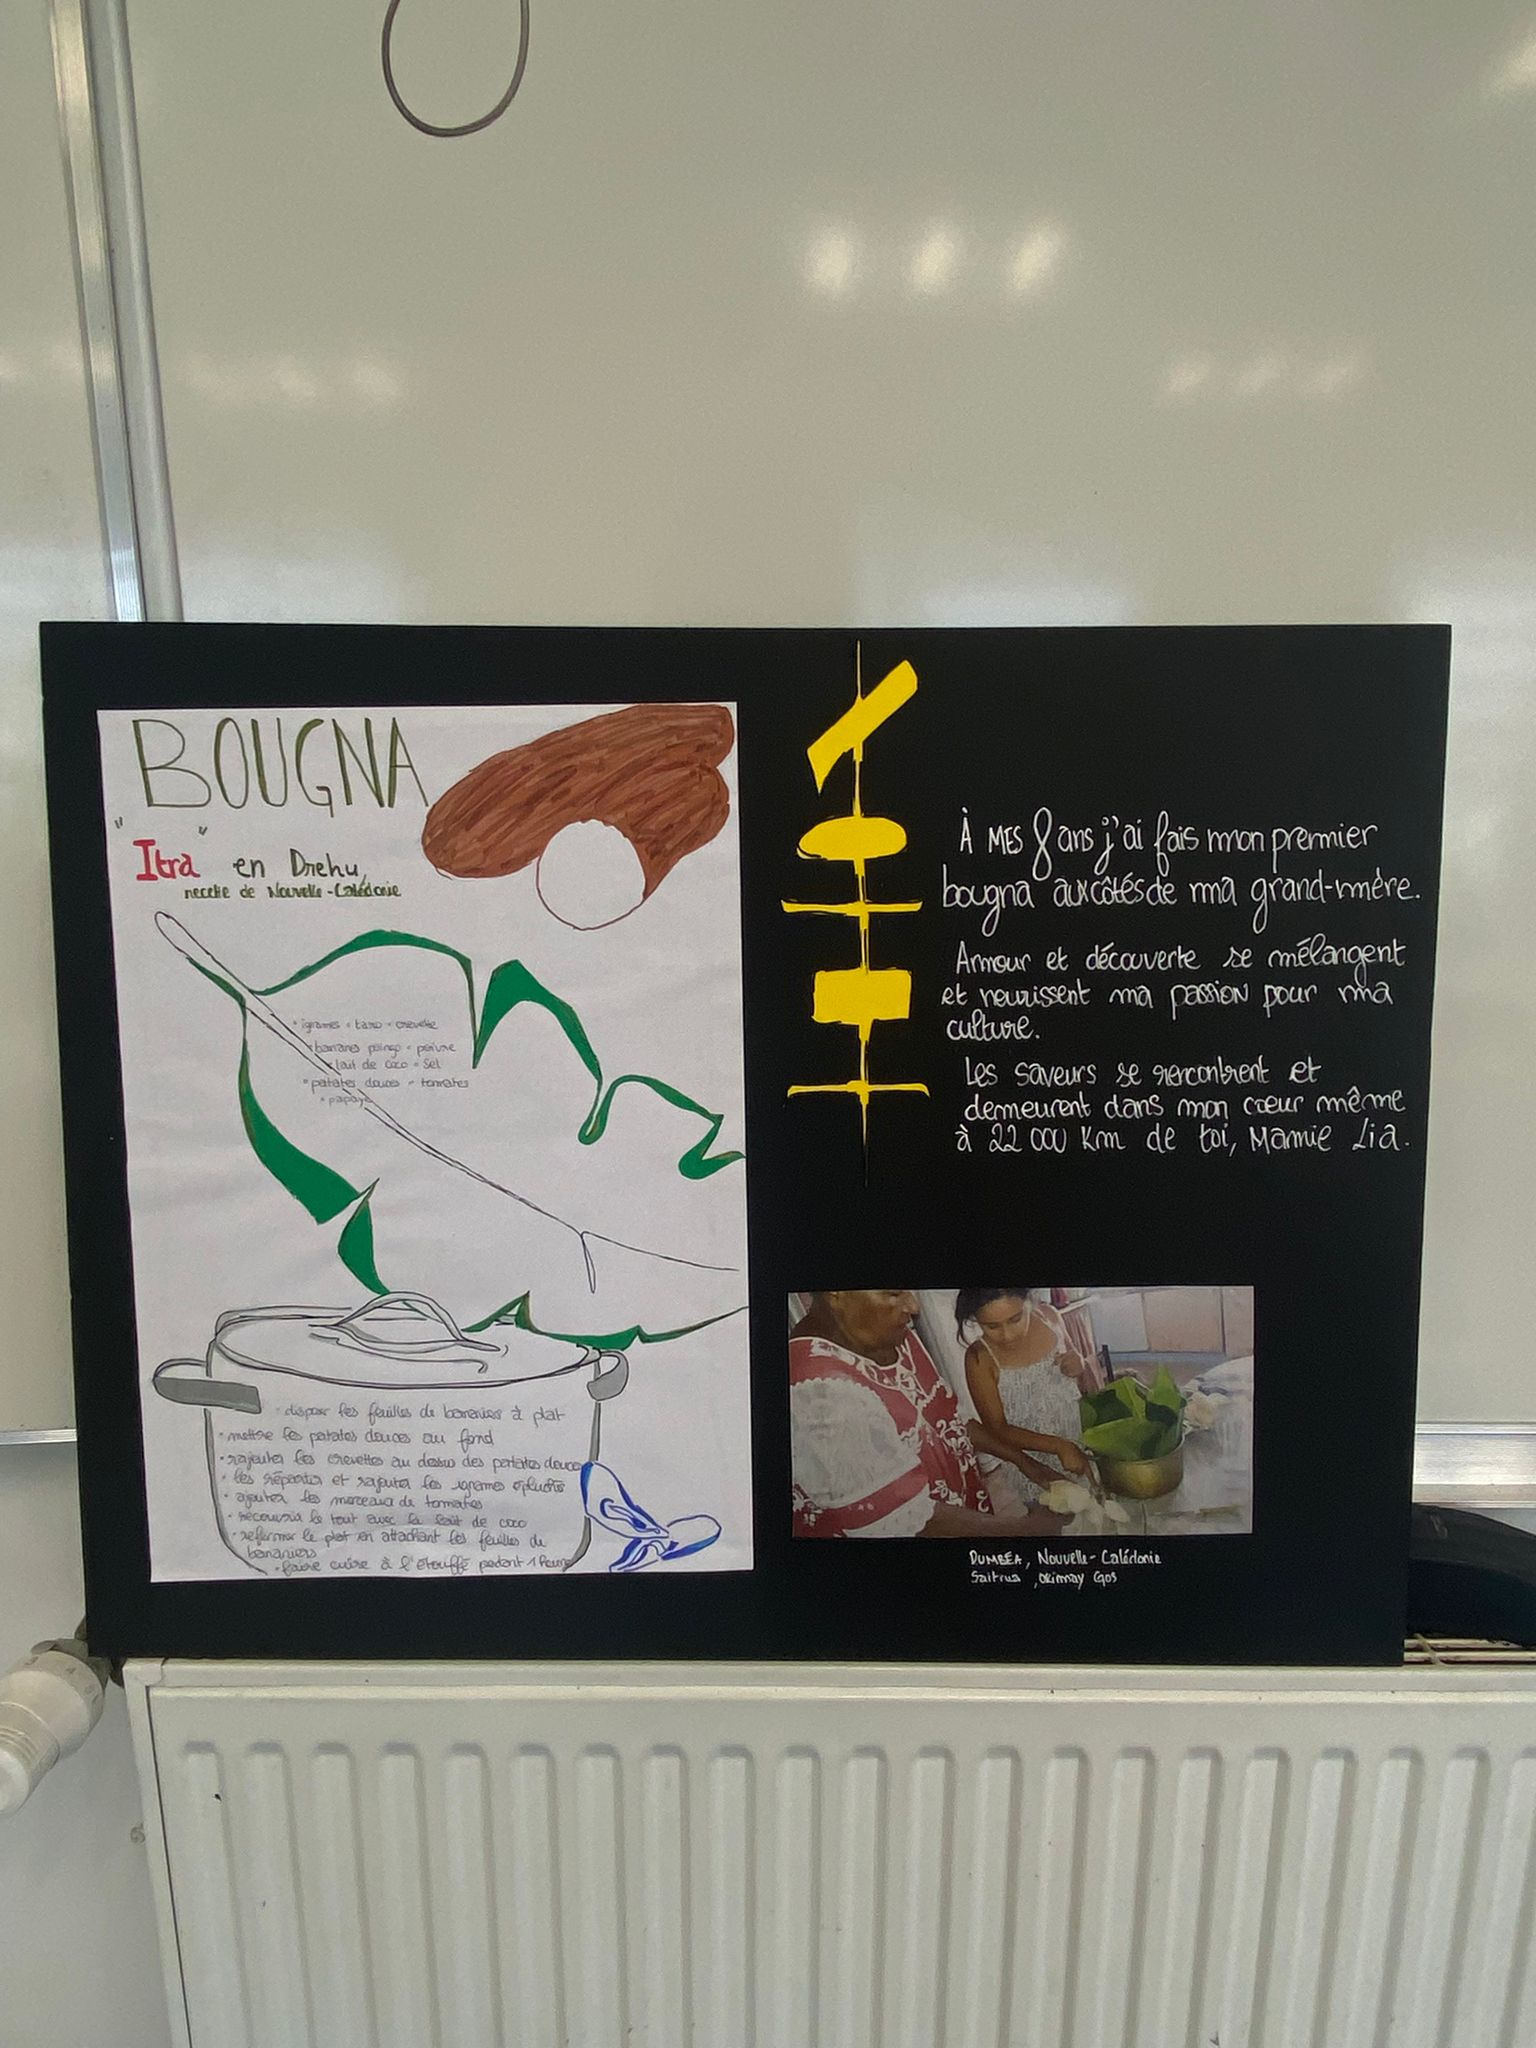 BOUGNA
"Itra" en Drehu,
recette de Nouvelle-Calédonie
• ignames • taro • crevette
• bananes poingo • poivre
• lait de coco • sel
• patates douces • tomates
• papaye
• disposer les feuilles de bananiers à plat
• mettre les patates douces au fond
• rajouter les crevettes au dessus des patates douces
• les répartir et rajouter les ignames épluchés
• ajouter les morceaux de tomates
• recouvrir le tout avec le lait de coco
• refermer le plat en attachant les feuilles de
bananiers
• faire cuire à l'étouffé pedant 1 heure
À MES 8 ans j'ai fais mon premier
bougna aux côtés de ma grand-mère.
Amour et découverte se mélangent
et nourissent ma passion pour ma
culture.
Les saveurs se rencontrent et
demeurent dans mon cœur même
à 22 000 Km de toi, Mamie Lia.
DUMBÉA, Nouvelle-Calédonie